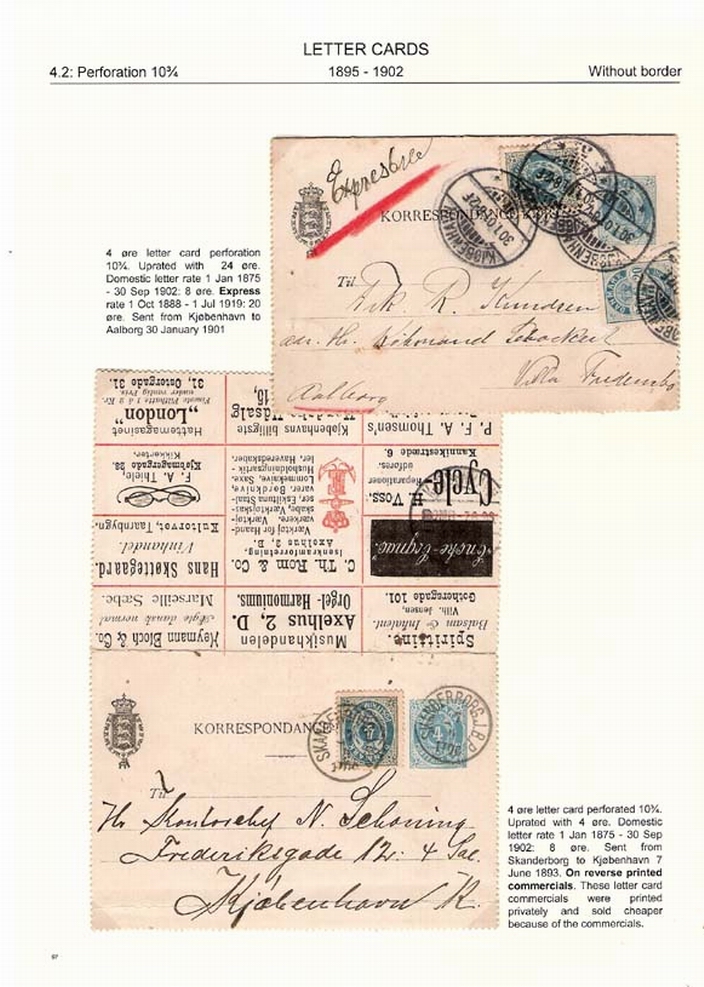 LETTER CARDS
4.2: Perforation 10¾ 1895 - 1902 Without border
4 øre letter card perforation
10¾. Uprated with 24 øre.
Domestic letter rate 1 Jan 1875
- 30 Sep 1902: 8 øre. Express
rate 1 Oct 1888 - 1 Jul 1919: 20
øre. Sent from Kjøbenhavn to
Aalborg 30 January 1901
Expresbrev
KORRESPONDANCE
Til
Frk. R. Knudsen
Villa
Aalborg
Spiritine.
Balsam & Inhalent.
Vilh. Jensen,
Gothersgade 101.
Musikhandelen
Axelhus 2, D.
Orgel- Harmoniums.
Heymann Bloch & Co.
Ægte dansk normal
Marseille Sæbe.
Encke-Cognac.
C. Th. Rom & Co.
Isenkramforretning.
Axelhus 2, B.
Værktøj for Haand-
værkere, Værktøj-
skabe, Værktøjskas-
ser, Eskilstuna Staal-
varer, Bordknive,
Lommeknive, Saxe,
Husholdningsartik-
ler, Haveredskaber.
Hans Skøttegaard.
Vinhandel.
Kultorvet, Taarnbygn.
Cycle-
H. Voss.
Reparationer
udføres.
Kannikestræde 6.
F. A. Thiele,
Kjøbmagergade 28.
Kikkerter.
P. F. A. Thomsen's
Kjøbenhavns billigste
Udsalg
15,
Hattemagasinet
"London"
31, Østergade 31.
KORRESPONDANCE
SKANDERBORG J.B.P.
Til
Hr Kontorchef N. Schøning
Frederiksgade 12. 4 Sal.
Kjøbenhavn K.
4 øre letter card perforated 10¾.
Uprated with 4 øre. Domestic
letter rate 1 Jan 1875 - 30 Sep
1902: 8 øre. Sent from
Skanderborg to Kjøbenhavn 7
June 1893. On reverse printed
commercials. These letter card
commercials were printed
privately and sold cheaper
because of the commercials.
97